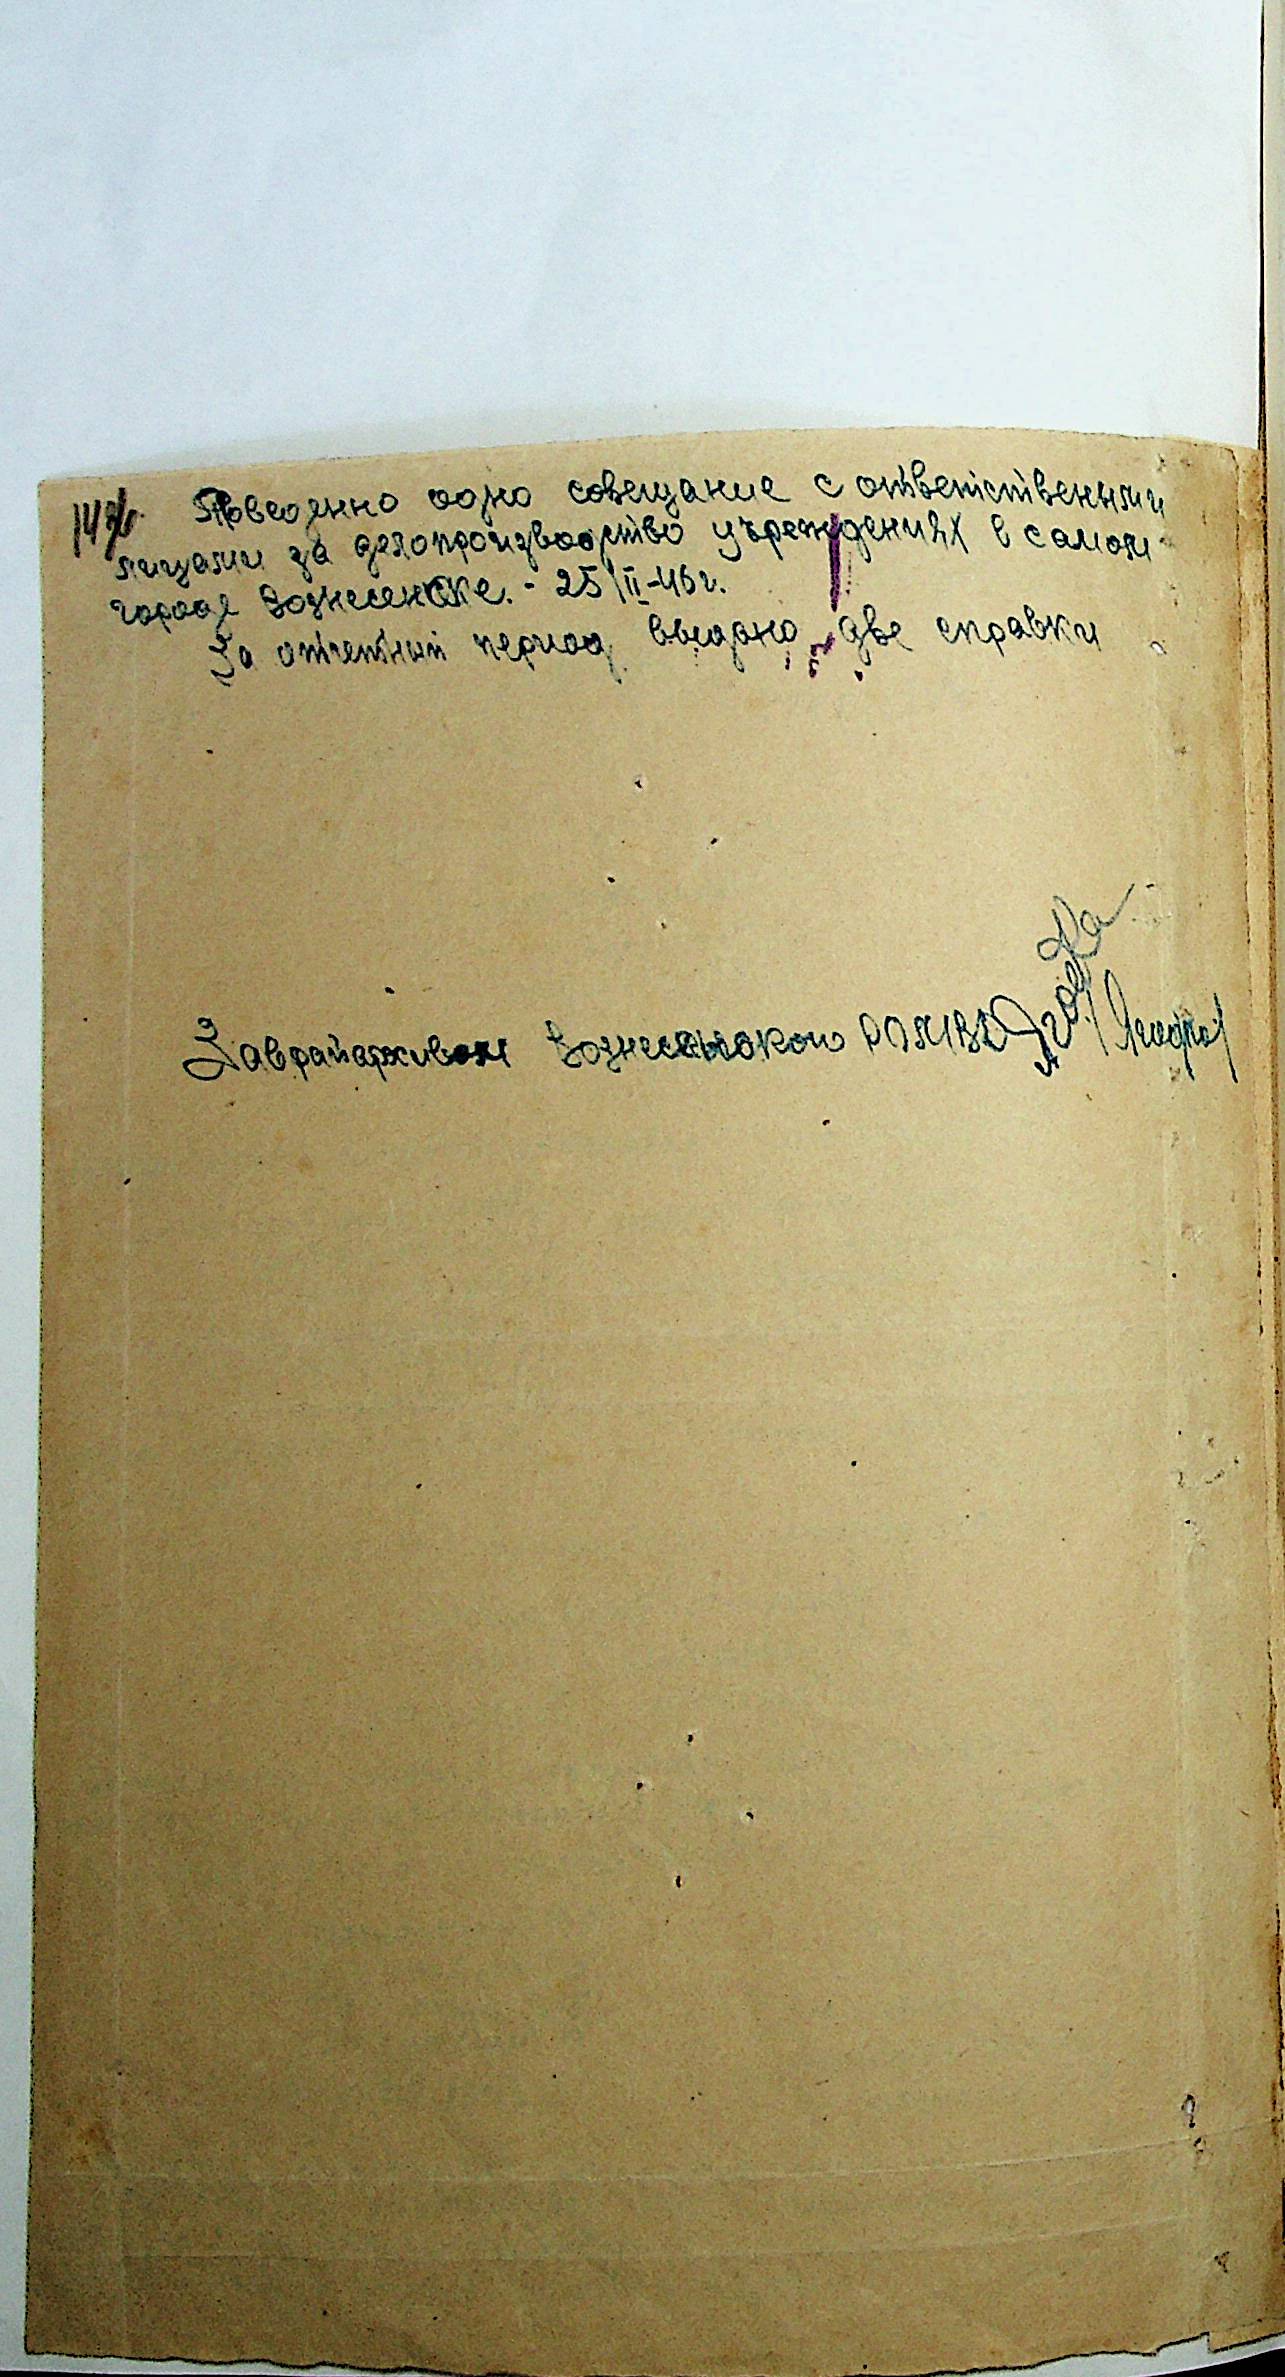 Проведенно одно совещание с ответственными
лицами за делопроизводство учреждениях в самом
городе Вознесенске. - 25/II-46 г.
За отчетний период выдано две справки
Заврайархивом Вознесенского РОМВД